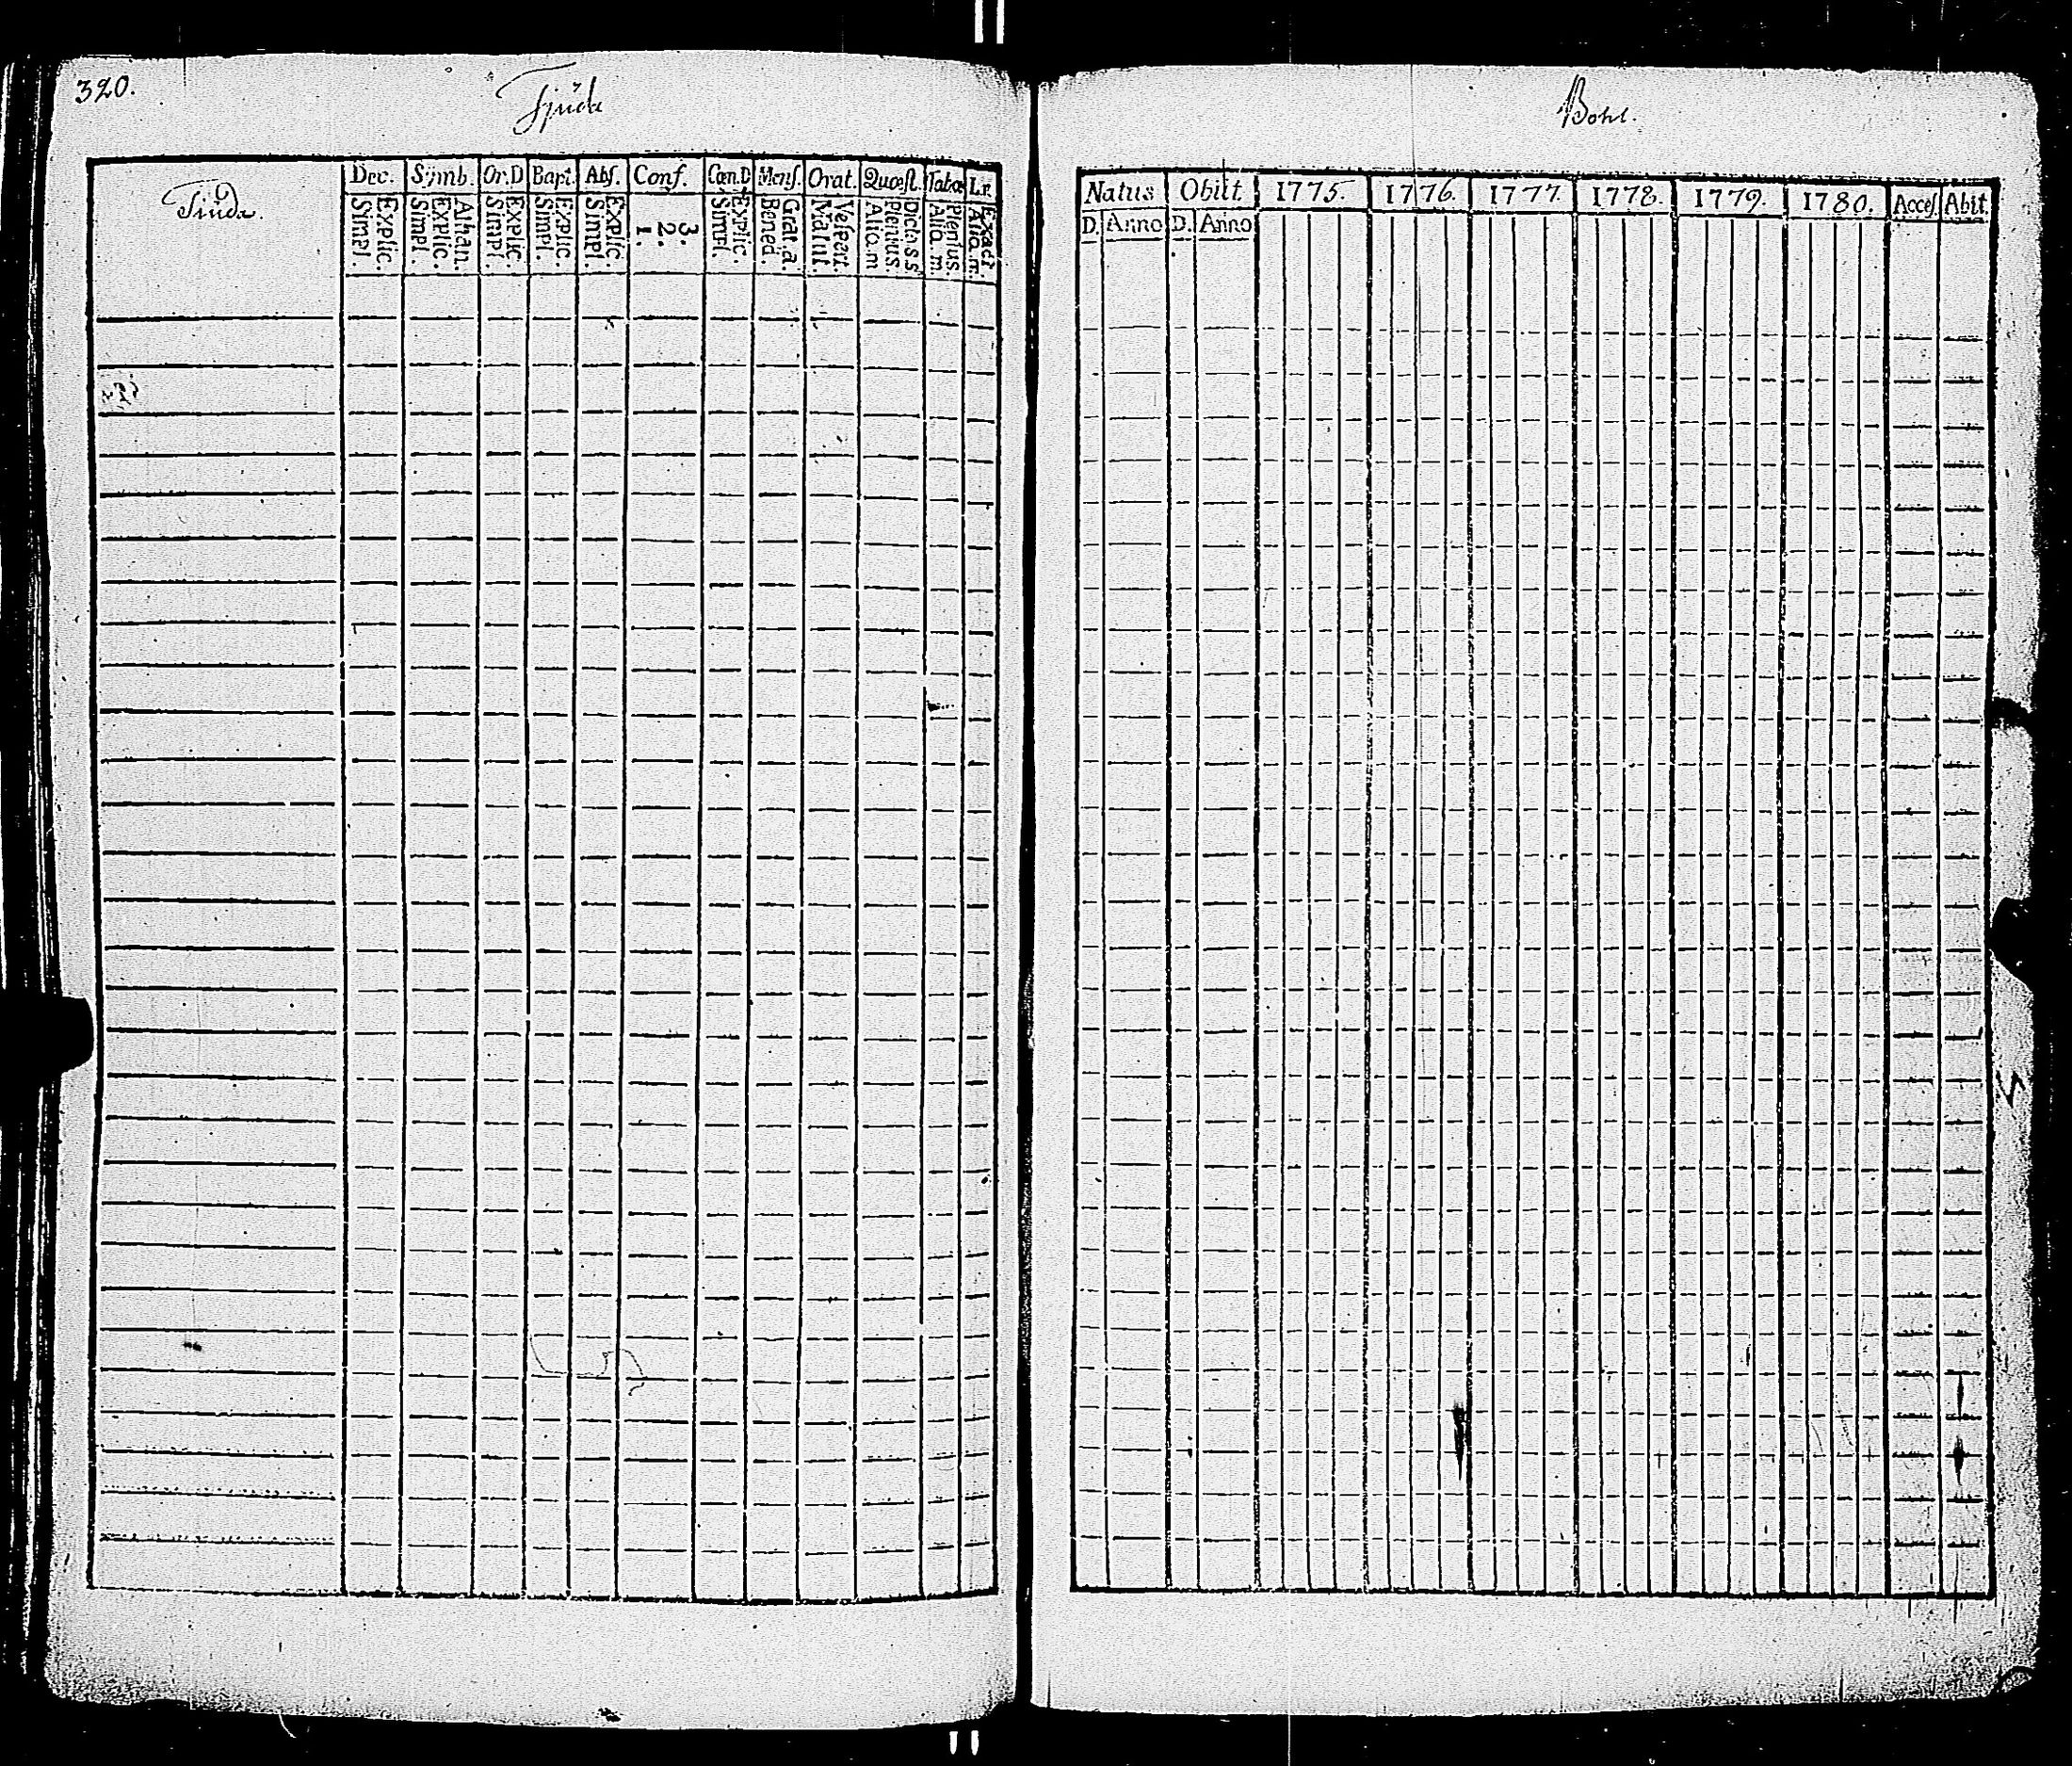 320.
Tjüda
Bohl.
Tiüda.
Dec. Symb. Or.D Bapt. Abs. Conf. Cœn.D Mens. Orat. Quæst. Tabœ
Explic. Simpl.
Athan. Explic. Simpl.
Explic. Simpl.
Explic. Simpl.
Explic. Simpl.
3. 2. 1.
Explic. Simpl.
Grat. a. Bened.
Vespert. Matut.
Dicta s s. Plenius. Aliq.m
Plenius. Aliq. m.
Exact Aliq.m.
Natus Obiit 1775. 1776. 1777. 1778. 1779. 1780. Acces. Abit.
D. Anno D. Anno